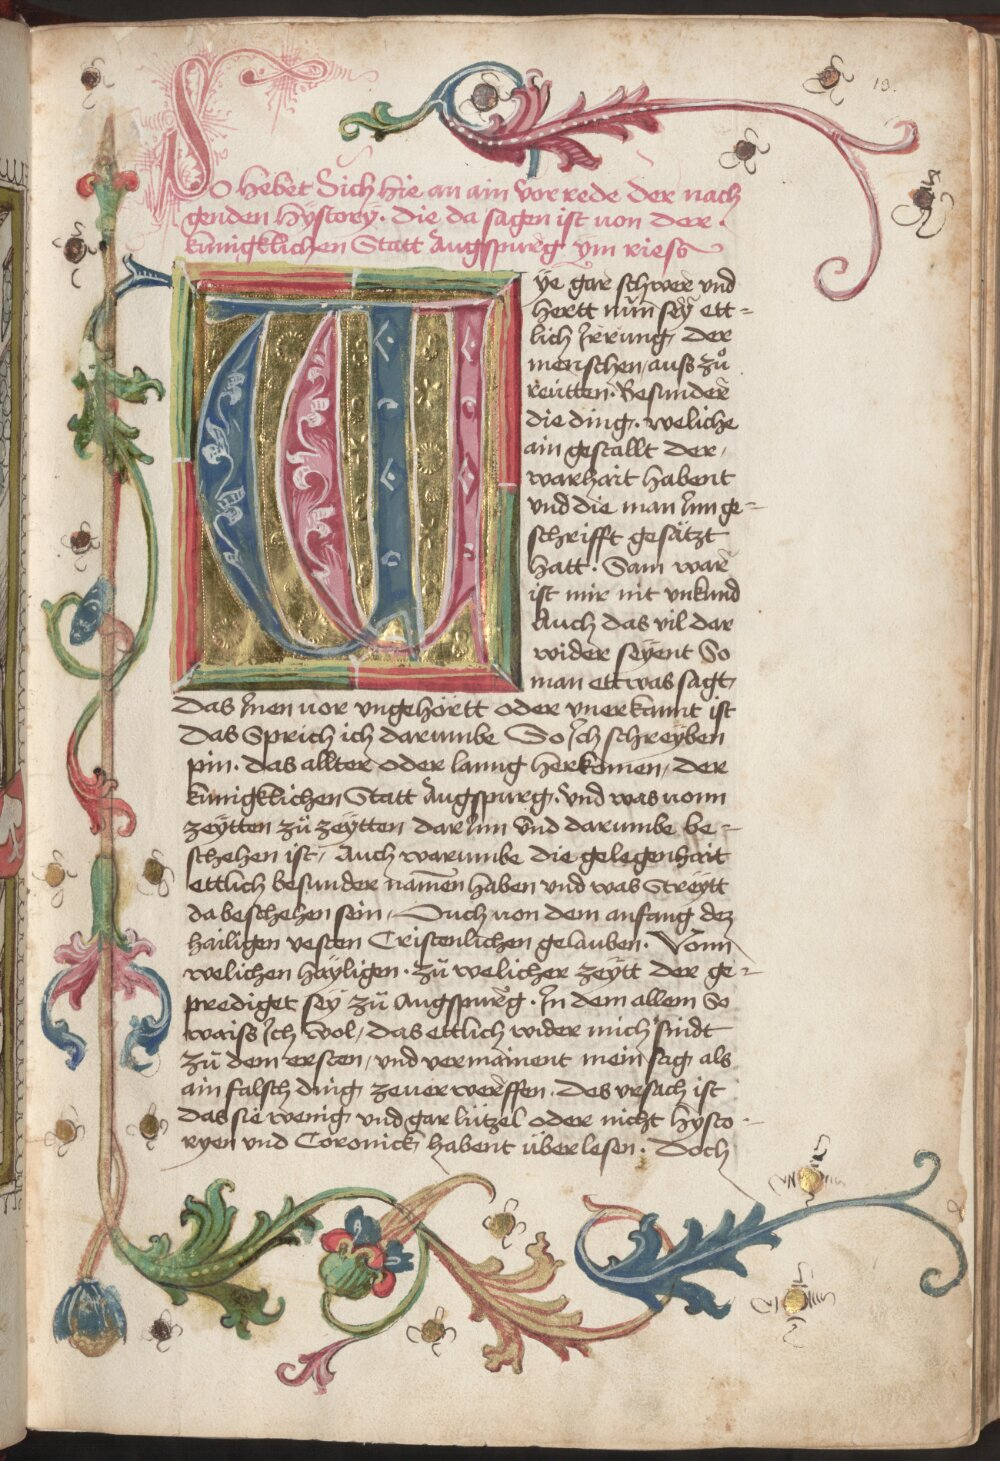 19.
So hebet Sich hie an ain vor rede der nach
genden hÿstorÿ. die da sagen ist uon der.
kunigklichen Statt Augspurg ym riess
Wÿe gar schwere vnd
hertt nun seÿ ett=
lich Jrrung, der
menschen, auss zů
reutten. Besunder
die ding. weliche
ain gestallt der,
warhait habent
vnd die man Jnn ge=
schrifft gesätzt
hatt. Sam war
ist mir nit vnkund
Auch das vil dar
wider seÿent So
man ettwas sagt,
das Jnen uor vngehörtt oder vnerkannt ist
Das Sprich ich darumbe So Jch schreÿben
pin. das allter oder lanng herkomen, der
kunigklichen Statt Augspurg. vnd was uonn
zeÿtten zů zeÿtten dar Jnn vnd darumbe be=
schehen ist, Auch warumbe die gelegenhait
ettlich besunder namen haben vnd was Streÿtt
da beschehen sein, Ouch uon dem anfang dez
hailigen vesten Cristenlichen gelauben. Vonn
welichen haÿligen. zů welicher zeÿtt der ge=
prediget seÿ zů Augspurg. Jn dem allem So
waiss Jch wol, das ettlich wider mich sindt
zů dem ersten, vnd vermainent mein sag als
ain falsch ding zeuerwerffen. des vrsach ist
das sie wenig, vnd gar lützel oder nicht hÿsto=
ryen vnd Coronick, habent überlesen. doch